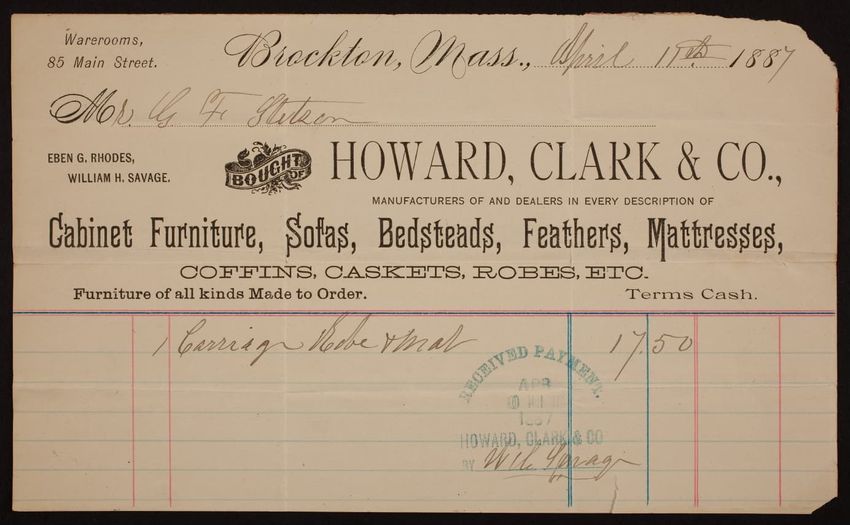 Warerooms,
85 Main Street.
Brockton, Mass., April 11th 1887
Mr. G F Stetson
EBEN G. RHODES,
WILLIAM H. SAVAGE.
BOUGHT OF
HOWARD, CLARK & CO.,
MANUFACTURERS OF AND DEALERS IN EVERY DESCRIPTION OF
Cabinet Furniture, Sofas, Bedsteads, Feathers, Mattresses,
COFFINS, CASKETS, ROBES, ETC.
Furniture of all kinds Made to Order. Terms Cash.
1 Carriage Robe & Mat 17.50
RECEIVED PAYMENT.
APR
1887
HOWARD, CLARK & CO
BY